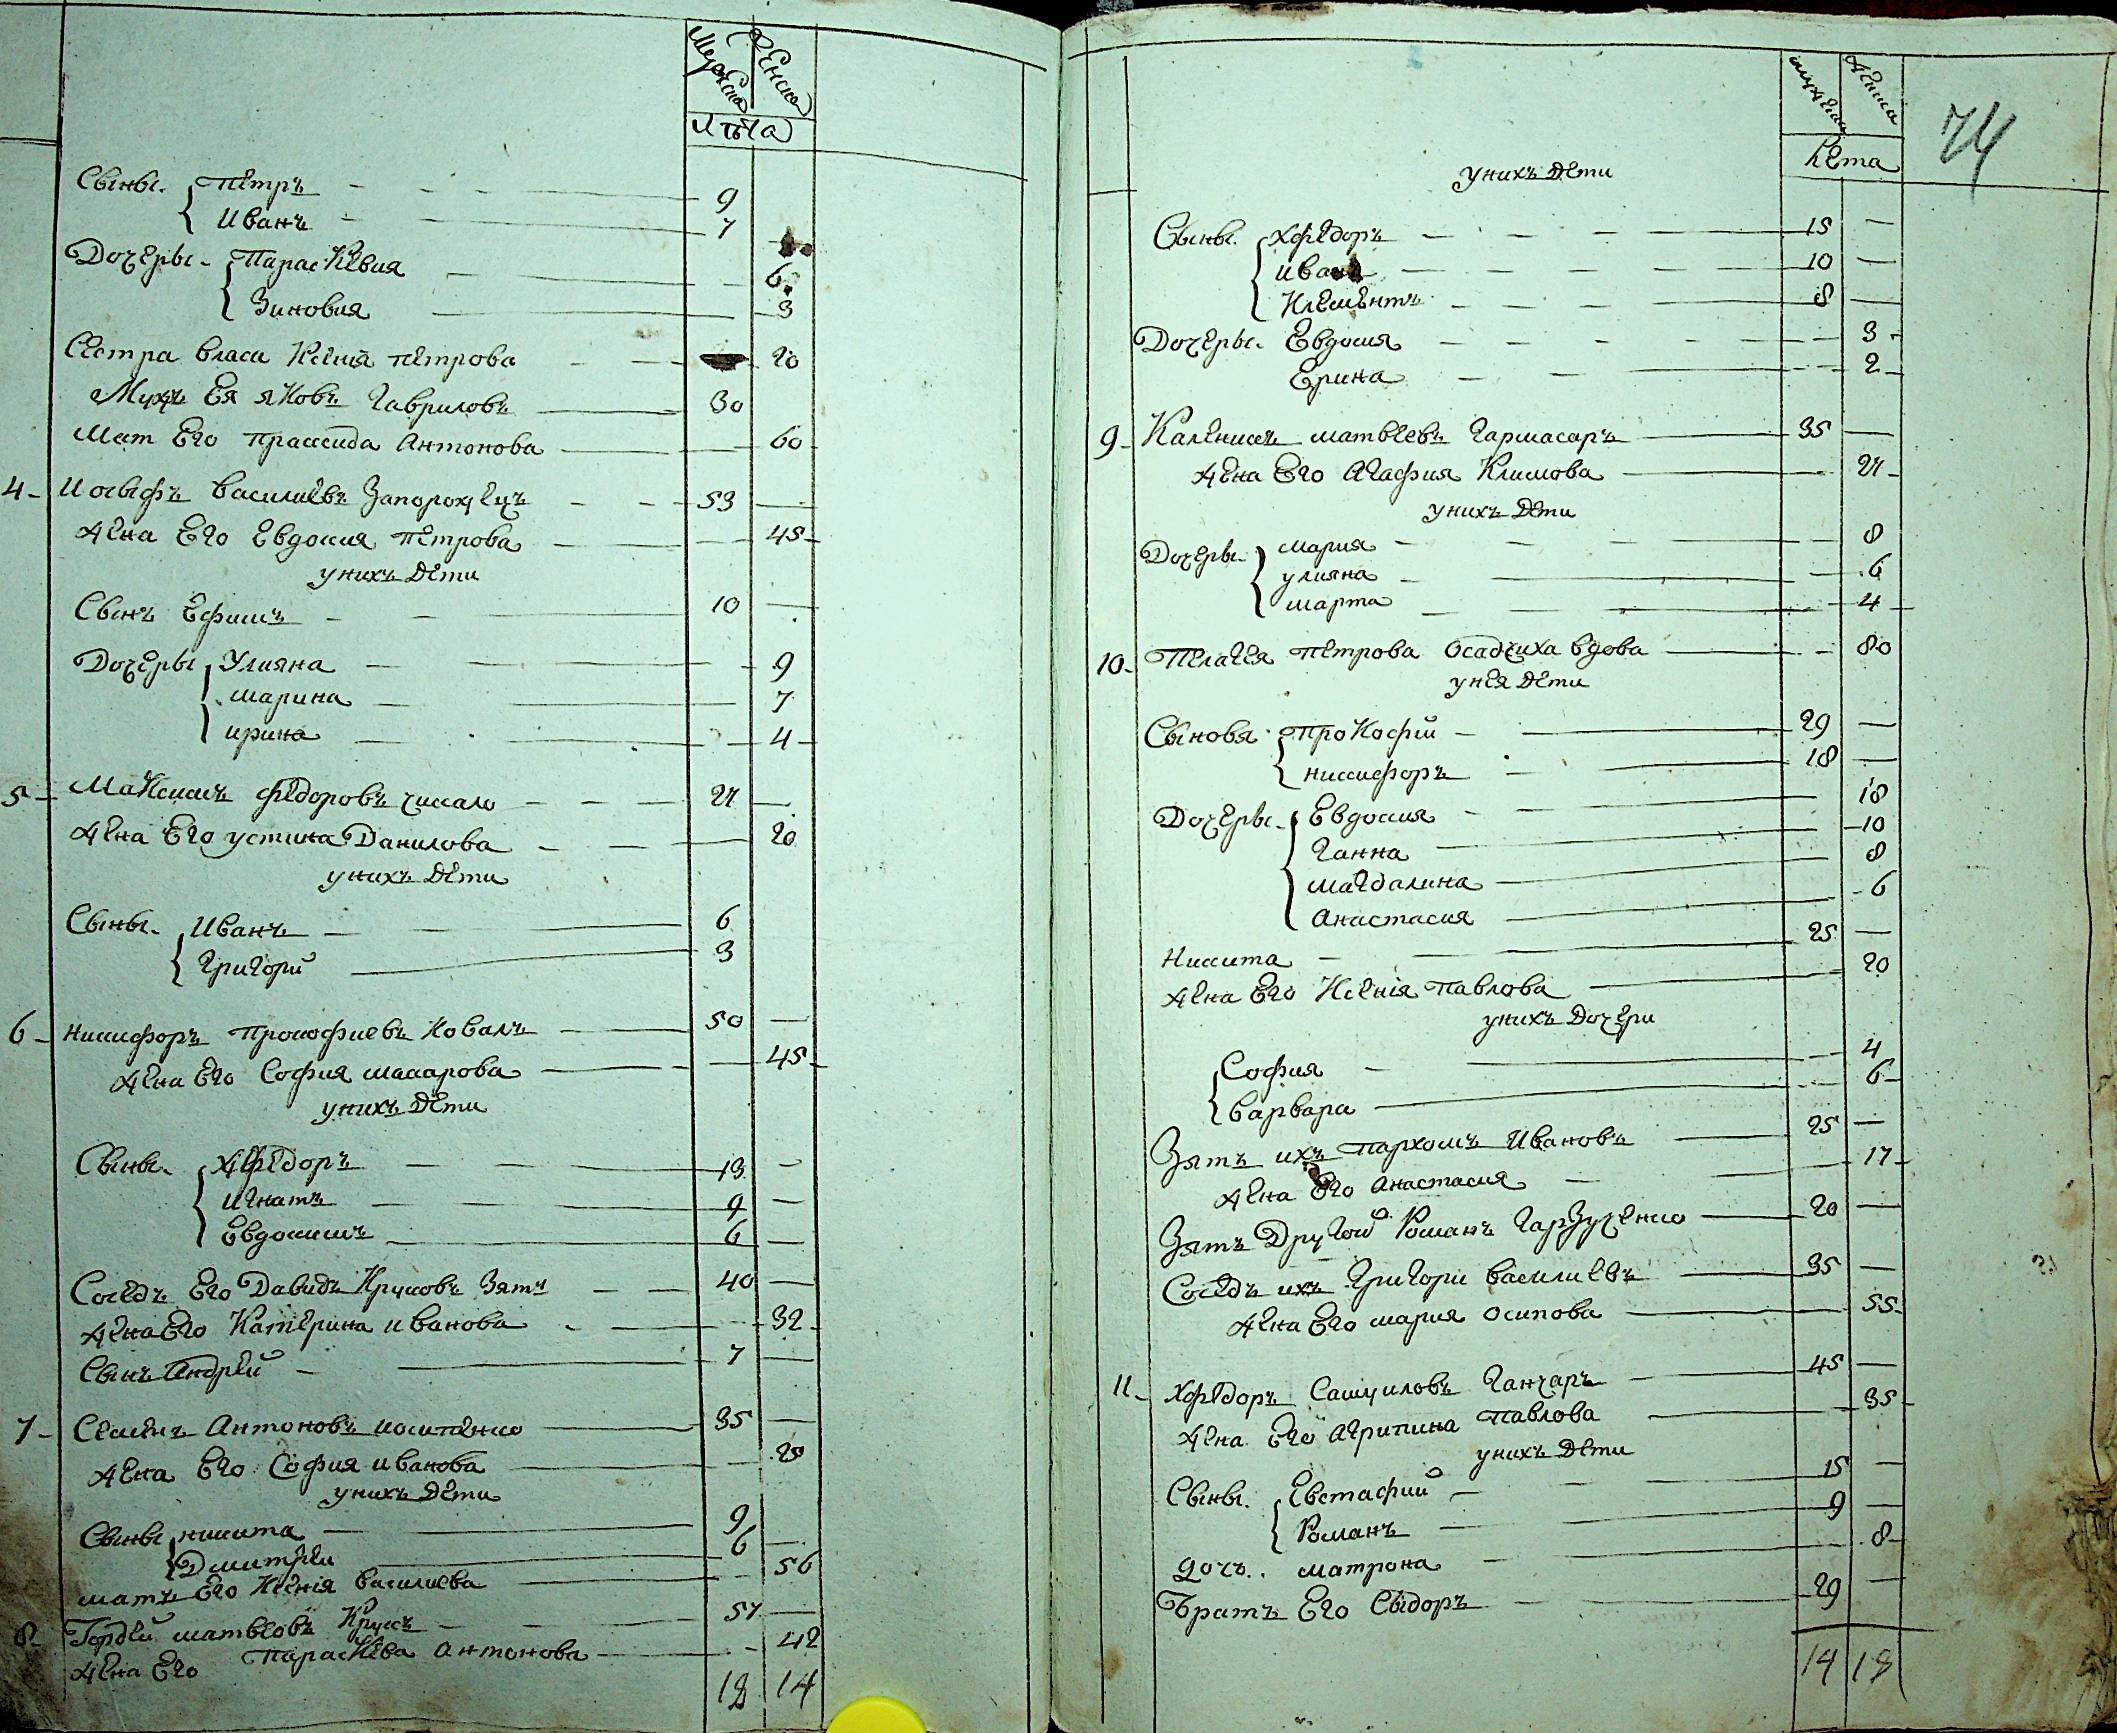 Мужеска Женска
лѣта
Сыны. Петръ 9
Иванъ 7
Дочеры. Параскевия 6
Зиновия 3
Сестра власа Ксения петрова 20
Мужъ Ея яковъ Гавриловъ 30
Мат Его праскида Антонова 60
4 Иосыфъ василиевъ Запорожецъ 53
жена Его Евдокия петрова 45
унихъ дети
Сынъ Ефимъ 10
Дочеры Улияна 9
марина 7
ирина 4
5 Максимъ федоровъ 24
жена Его устина Данилова 20
унихъ дети
Сыны. Иванъ 6
Григорий 3
6 никифоръ прокофиевъ Ковалъ 50
жена Его София макарова 45
унихъ дети
Сыны. Хфедоръ 13
игнатъ 9
Евдокимъ 6
Соседъ Его Давидъ Круковъ Зятъ 40
жена Его Катерина иванова 32
Сынъ Андрей 7
7 Семенъ Антоновъ 35
жена Его София иванова 25
унихъ дети
Сыны никита 9
Дмитрей 6
матъ Его Ксенія василиева 56
8 Гордей матвеовъ 57
жена Его Параскева Антонова 42
12 14
74
мужеска женска
лета
унихъ дети
Сыны. Хфедоръ 15
иванъ 10
Клементъ 8
Дочеры. Евдокия 3
Ерина 2
9 Каленикъ матвеевъ Гармасаръ 35
жена Его Агафия Климова 24
унихъ дети
Дочеры. мария 8
улияна 6
марта 4
10 Пелагея петрова Осадчиха вдова 80
унея дети
Сыновя. Прокофий 29
никифоръ 18
Дочеры. Евдокия 18
Ганна 10
магдалина 8
Анастасия 6
никита 25
жена Его Ксенія павлова 20
унихъ дочери
София 4
варвара 6
Зятъ ихъ пархомъ Ивановъ 25
жена Его Анастасия 17
Зятъ Другой Романъ 20
Соседъ ихъ Григори василиевъ 35
жена Его мария осипова 55
11 Хфедоръ Самуиловъ Ганчаръ 45
жена Его Агрипина павлова 35
унихъ дети
Сыны. Евстафий 15
Романъ 9
дочъ. матрона 8
Братъ Его Сыдоръ 29
14 18